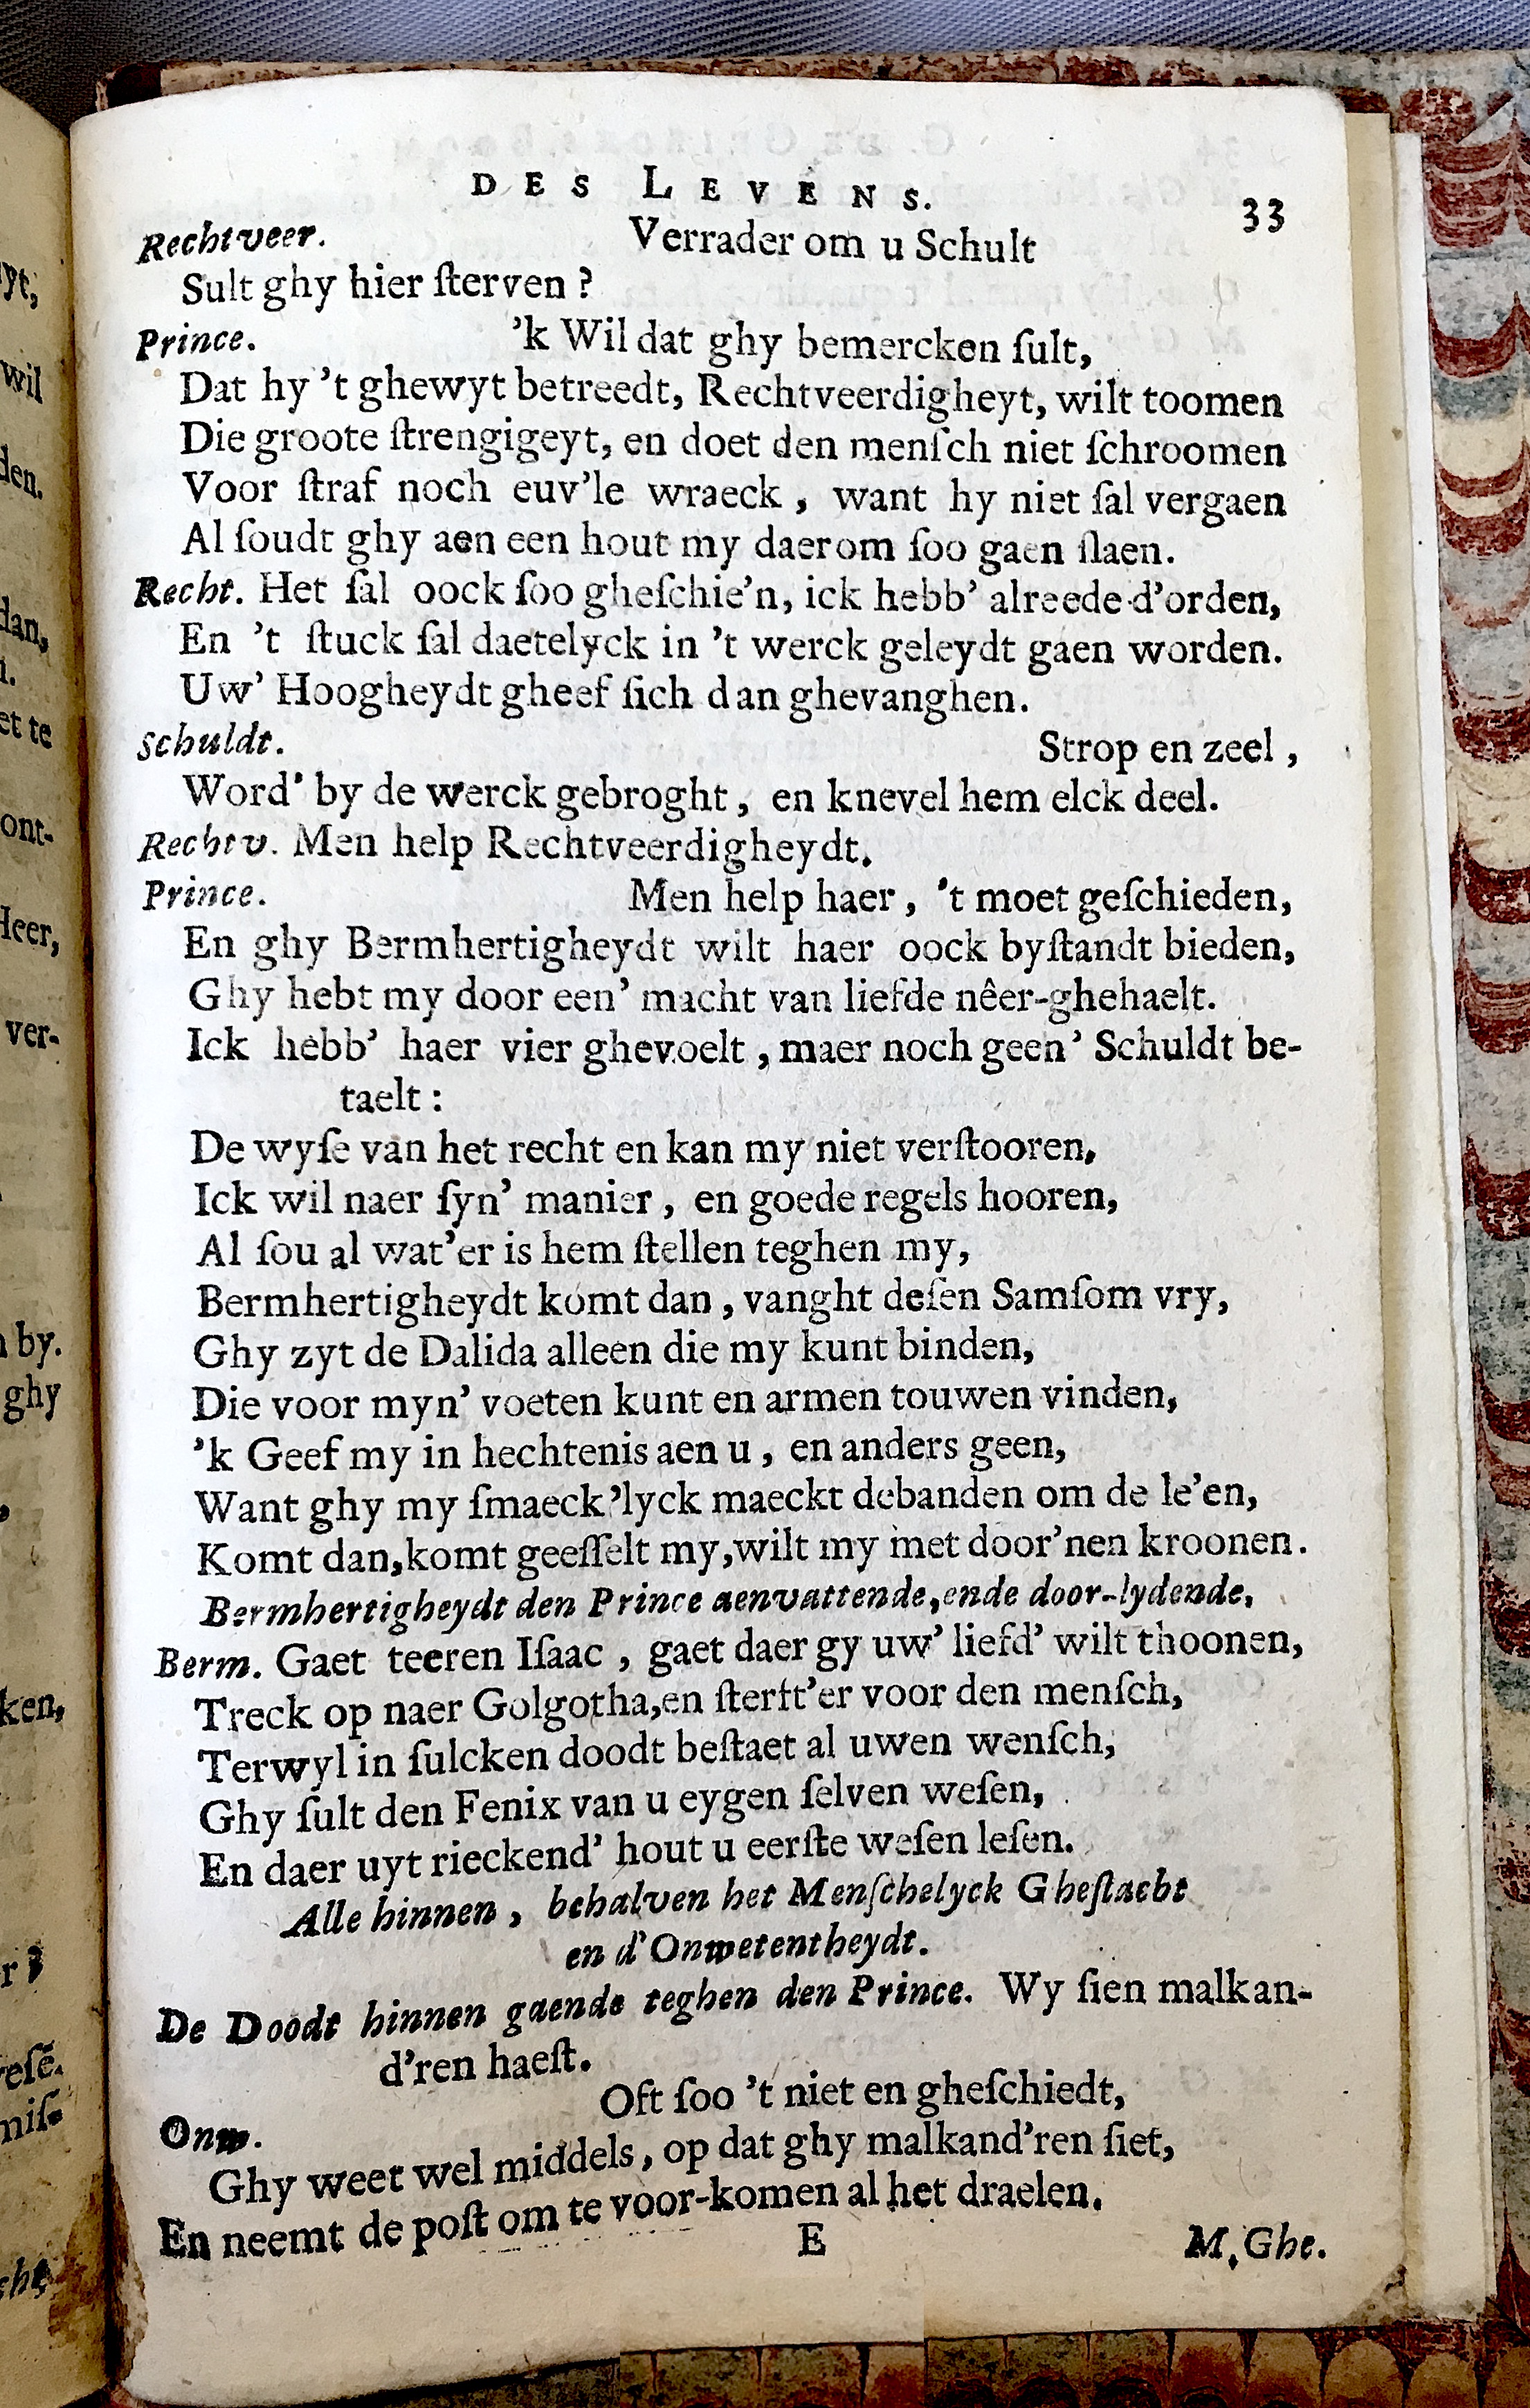 DES LEVENS. 33
Rechtveer. Verrader om u Schult
Sult ghy hier ſterven ?
Prince. 'k Wil dat ghy bemercken ſult,
Dat hy 't ghewyt betreedt, Rechtveerdigheyt, wilt toomen
Die groote ſtrengigeyt, en doet den menſch niet ſchroomen
Voor ſtraf noch euv'le wraeck , want hy niet ſal vergaen
Al ſoudt ghy aen een hout my daerom ſoo gaen ſlaen.
Recht. Het ſal oock ſoo gheſchie'n, ick hebb' alreede d'orden,
En 't ſtuck ſal daetelyck in 't werck geleydt gaen worden.
Uw' Hoogheydt gheef ſich dan ghevanghen.
Schuldt. Strop en zeel ,
Word' by de werck gebroght , en knevel hem elck deel.
Rechtv. Men help Rechtveerdigheydt.
Prince. Men help haer , 't moet geſchieden,
En ghy Bermhertigheydt wilt haer oock byſtandt bieden,
Ghy hebt my door een' macht van liefde nêer-ghehaelt.
Ick hebb' haer vier ghevoelt , maer noch geen' Schuldt be-
taelt :
De wyſe van het recht en kan my niet verſtooren,
Ick wil naer ſyn' manier , en goede regels hooren,
Al ſou al wat'er is hem ſtellen teghen my,
Bermhertigheydt komt dan , vanght deſen Samſom vry,
Ghy zyt de Dalida alleen die my kunt binden,
Die voor myn' voeten kunt en armen touwen vinden,
'k Geef my in hechtenis aen u , en anders geen,
Want ghy my ſmaeck'lyck maeckt debanden om de le'en,
Komt dan,komt geeſſelt my,wilt my met door'nen kroonen.
Bermhertigheydt den Prince aenvattende,ende door-lydende,
Berm. Gaet teeren Iſaac , gaet daer gy uw' liefd' wilt thoonen,
Treck op naer Golgotha,en ſterft'er voor den menſch,
Terwyl in ſulcken doodt beſtaet al uwen wenſch,
Ghy ſult den Fenix van u eygen ſelven weſen,
En daer uyt rieckend' hout u eerſte weſen leſen.
Alle binnen , behalven het Menſchelyck Gheſlacht
en d'Onwetentheydt.
De Doodt binnen gaende teghen den Prince. Wy ſien malkan-
d'ren haeſt.
Onw. Oft ſoo 't niet en gheſchiedt,
Ghy weet wel middels , op dat ghy malkand'ren ſiet,
En neemt de poſt om te voor-komen al het draelen.
E M. Ghe.
yt,
wil
den.
dan,
et te
ont-
Heer,
ver-
by.
ghy
ken,